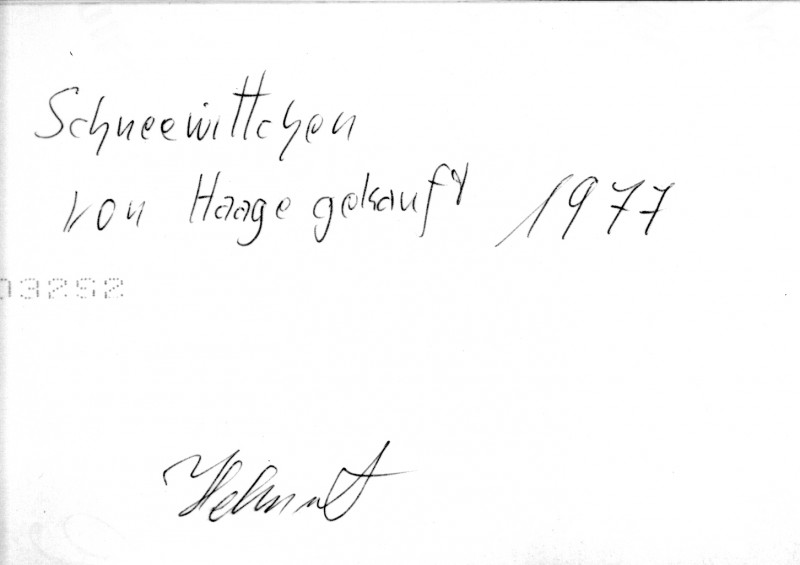 Schneewittchen
von Haage gekauft 1977
03292
Helmut